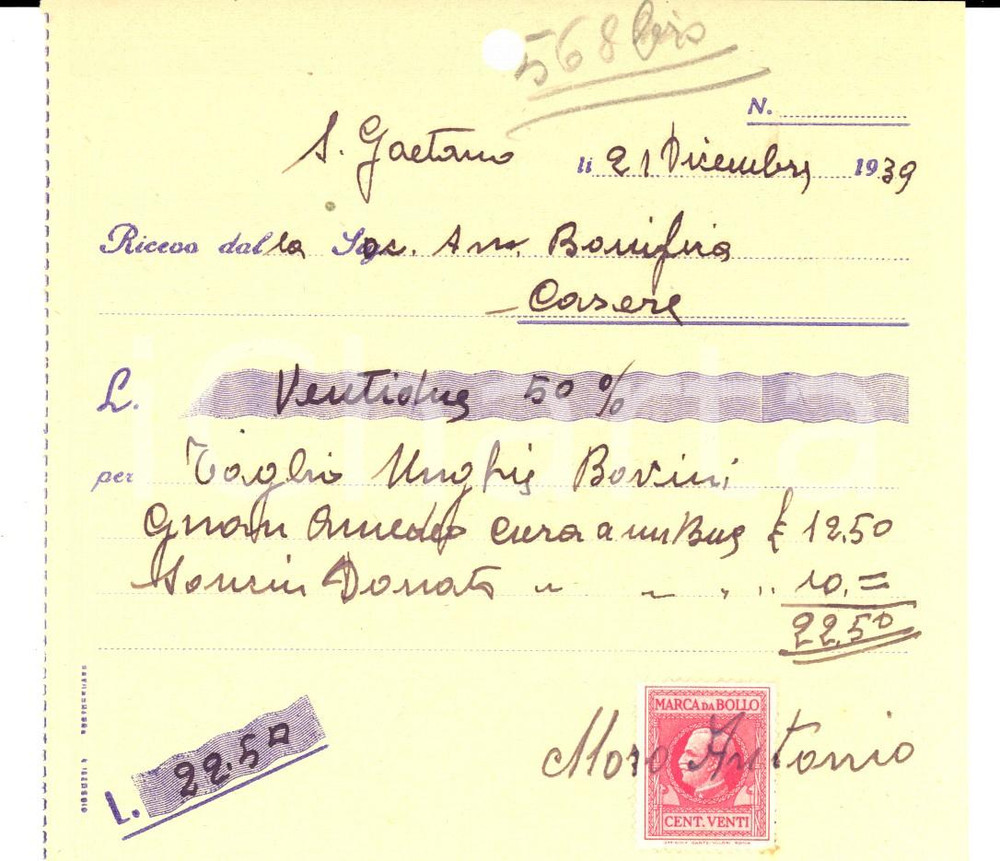 568 bis
N.
S. Gaetano li 21 Dicembre 1939
Ricevo dalla Soc. An. Bonifica
Casere
L. Ventidue 50 %
per Taglio Unghie Bovini
Amedeo cura a un Bue £ 12.50
Donato " " " " 10.=
22.50
MARCA DA BOLLO
Moro Antonio
L. 22.50
CENT. VENTI
iCharta